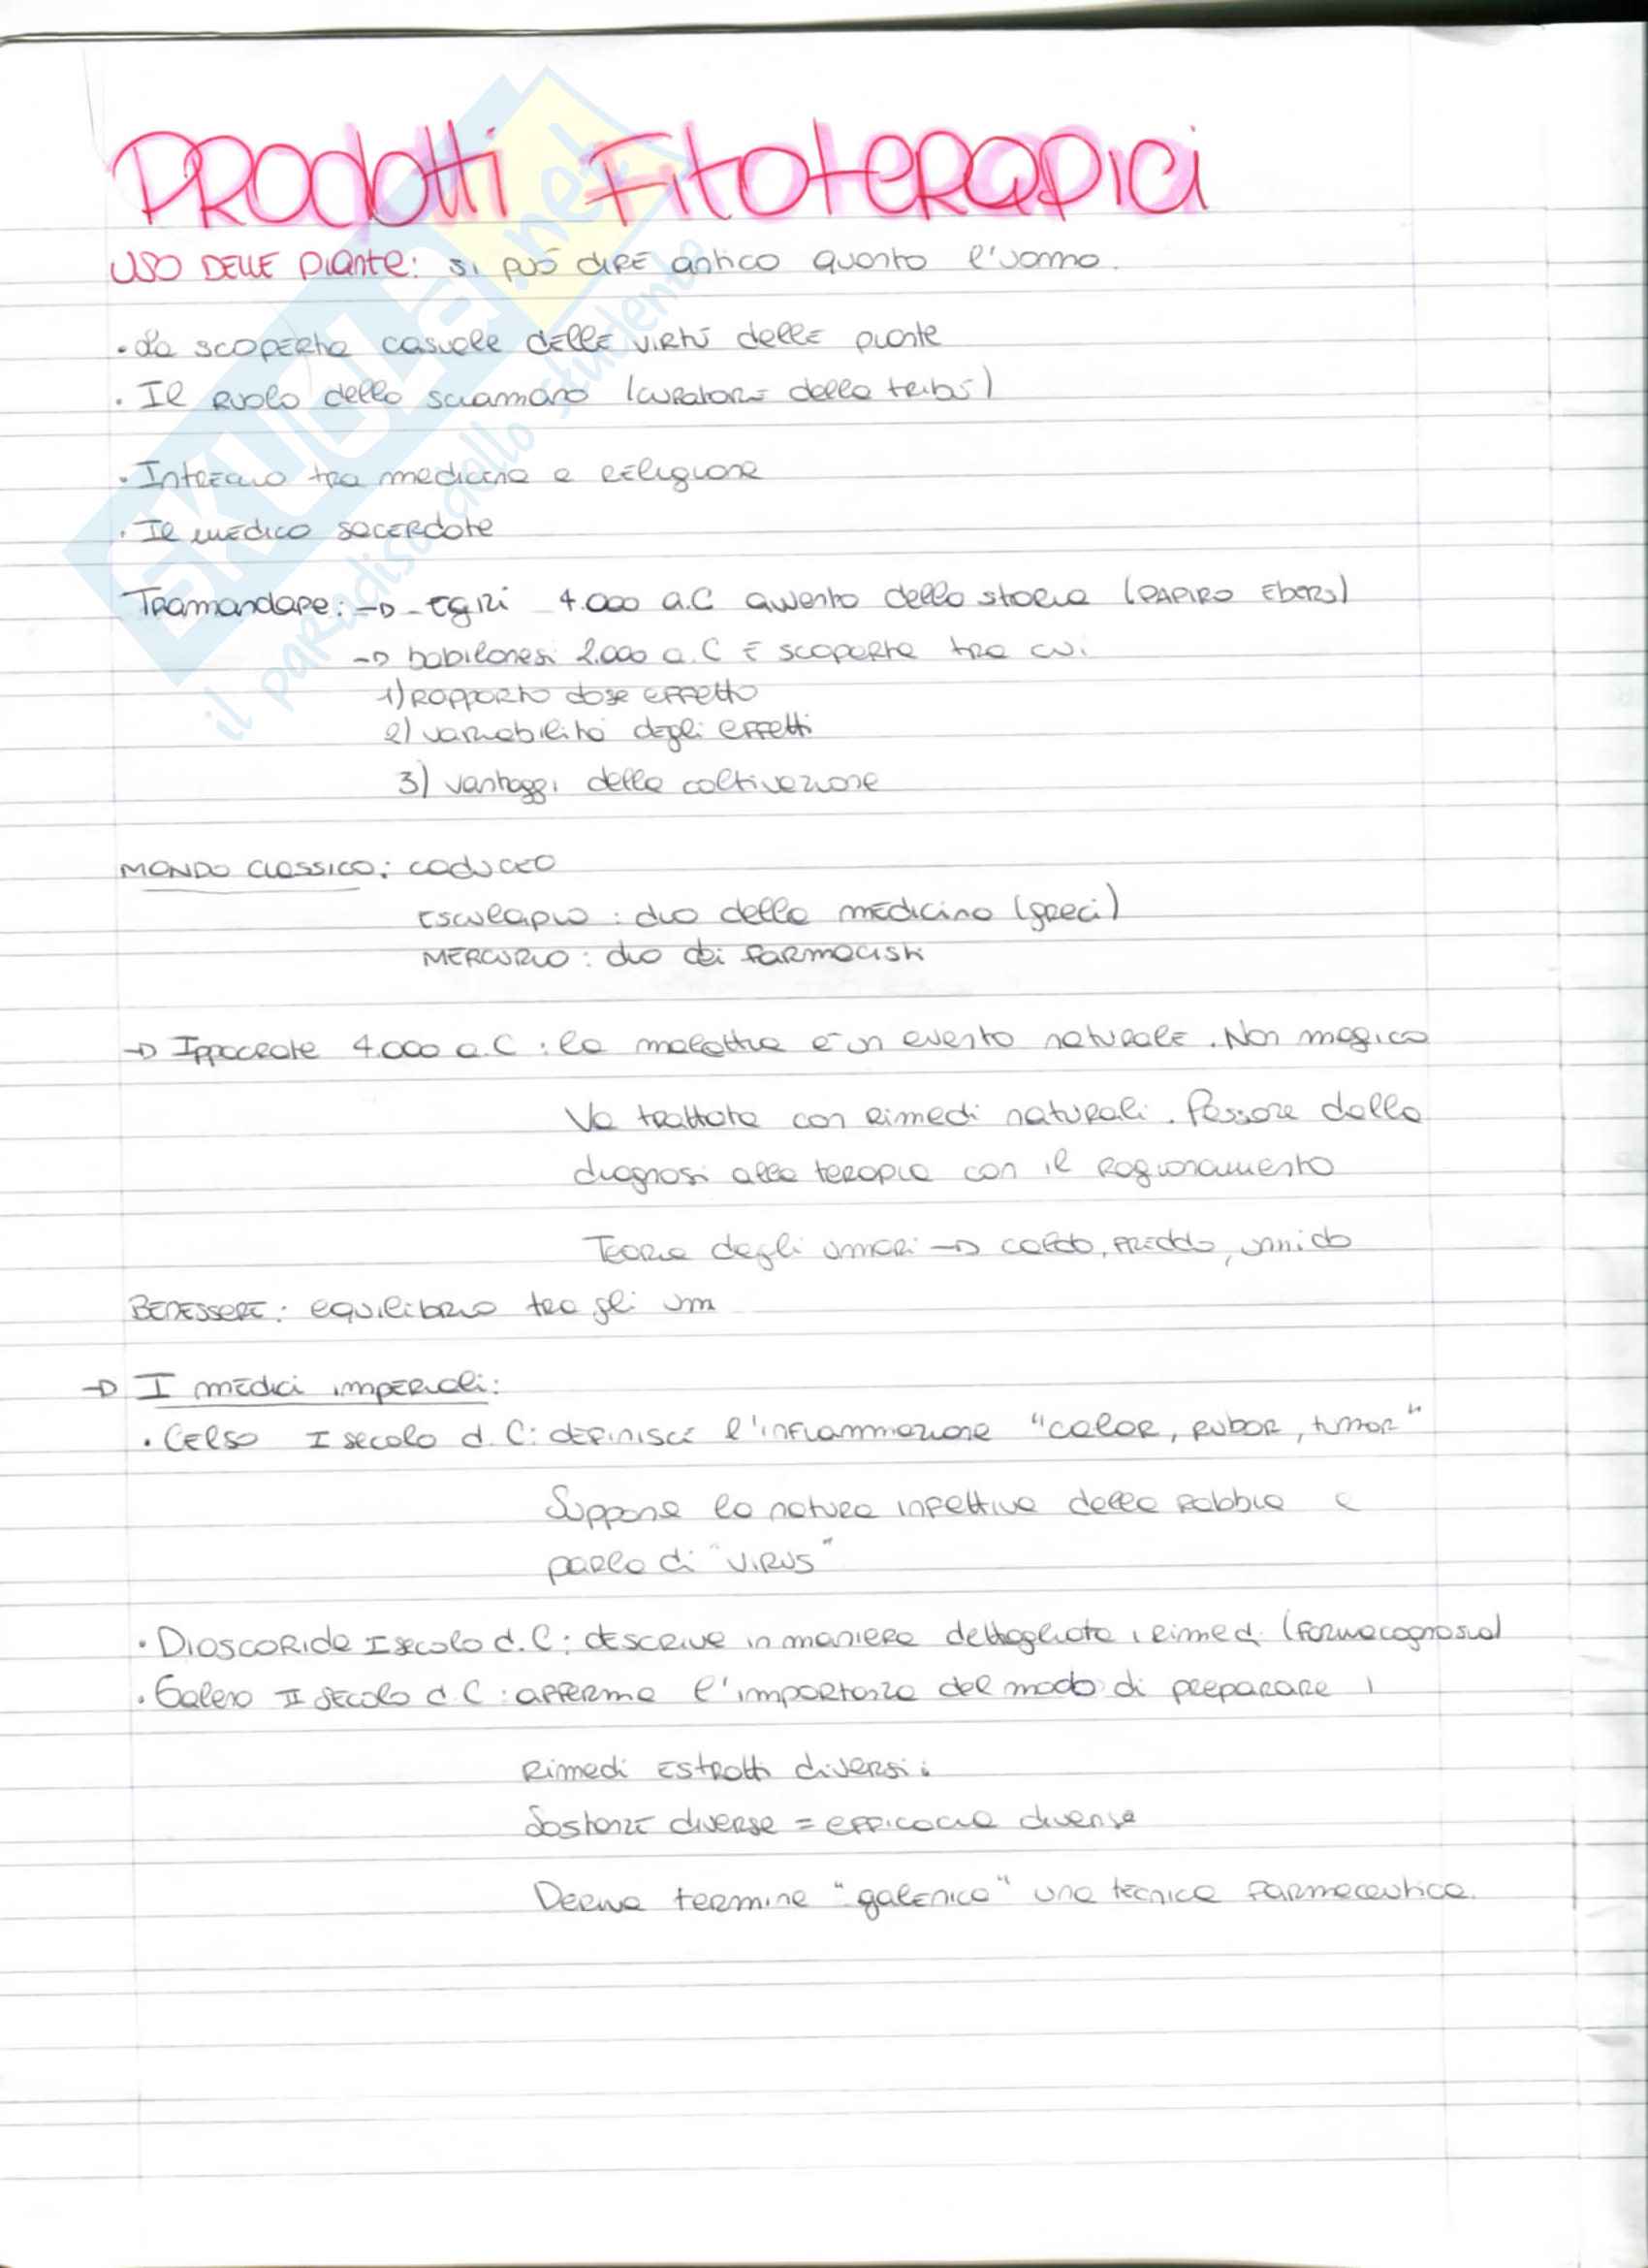 PRODOTTI FITOTERAPICI
USO DELLE PIANTE: si può dire antico quanto l'uomo.
· La scoperta casuale delle virtù delle piante
· Il ruolo dello sciamano (curatore della tribù)
· Intreccio tra medicina e religione
· Il medico sacerdote
Tramandare: → - Egizi 4.000 a.C avvento della storia (PAPIRO Ebers)
→ babilonesi 2.000 a.C E scoperte tra cui
1) rapporto dose effetto
2) variabilità degli effetti
3) vantaggi della coltivazione
MONDO CLASSICO: caduceo
Esculapio: dio della medicina (greci)
MERCURIO: dio dei farmacisti
→ Ippocrate 4.000 a.C: la malattia è un evento naturale. Non magico
Va trattata con rimedi naturali. Passare dalla
diagnosi alla terapia con il ragionamento
Teoria degli umori → caldo, freddo, umido
BENESSERE: equilibrio tra gli um
→ I medici imperiali:
· Celso I secolo d.C: definisce l'infiammazione "calor, rubor, tumor"
Suppone la natura infettiva della rabbia e
parla di "VIRUS"
· Dioscoride I secolo d.C: descrive in maniera dettagliata i rimedi (farmacognosia)
· Galeno II secolo d.C: afferma l'importanza del modo di preparare i
rimedi estratti diversi:
Sostanze diverse = efficacia diversa
Deriva termine "galenico" una tecnica farmaceutica.
SKUOLA.net
il paradiso dello studente